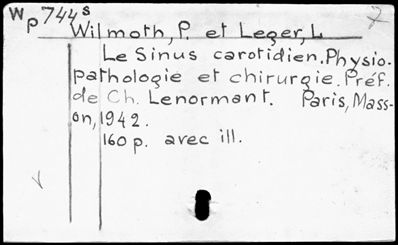 Wp744s 7
Wilmoth, P. et Leger, L.
Le Sinus carotidien. Physio-
pathologie et chirurgie. Préf.
de Ch. Lenormant. Paris, Mass-
on, 1942.
160 p. avec ill.